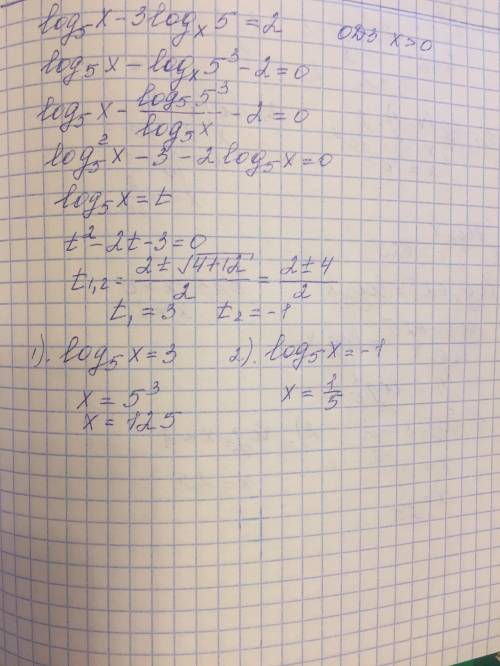 log₅x - 3logₓ5 = 2 ОДЗ x>0
log₅x - logₓ5³ - 2 = 0
log₅x - log₅5³/log₅x - 2 = 0
log₅²x - 3 - 2log₅x = 0
log₅x = t
t² - 2t - 3 = 0
t₁,₂ = (2 ± √4+12)/2 = (2 ± 4)/2
t₁ = 3 t₂ = -1
1). log₅x = 3 2). log₅x = -1
x = 5³ x = 1/5
x = 125